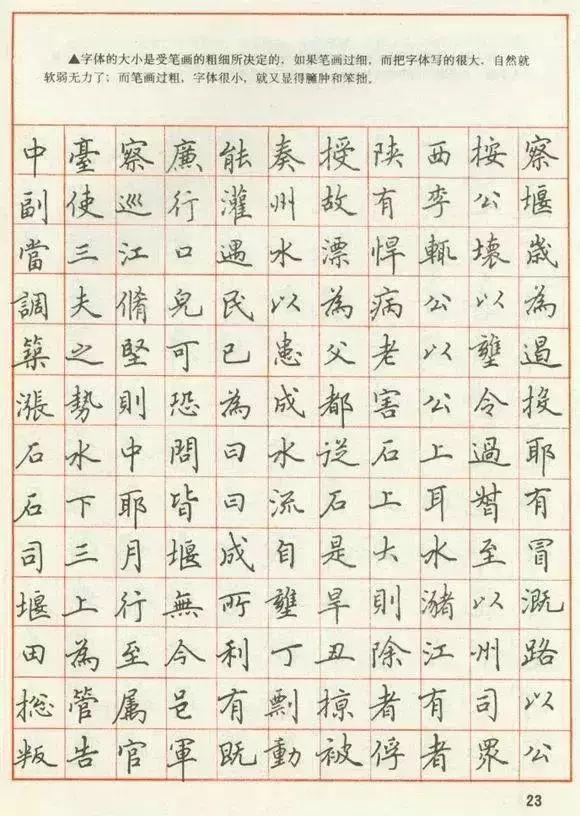 ▲字体的大小是受笔画的粗细所决定的，如果笔画过细，而把字体写的很大，自然就
软弱无力了；而笔画过粗，字体很小，就又显得臃肿和笨拙。
中臺察廉能奏授陕西按察
副使巡行灌州故有李公堰
當三江口遇水漂悍輒壞歳
調夫脩完民以為病公以為
築之堅可已患父老以壅遏
漲勢則恐為成都害公令投
石水中問曰水從石上過耶
石下耶皆曰流石上耳督有
司三月堰成自是大水至冒
堰上行無所壅旱則瀦以溉
田為至今利丁丑除江州路
総管属邑有剽掠者有司以
叛告官軍既動被俘者眾公
23